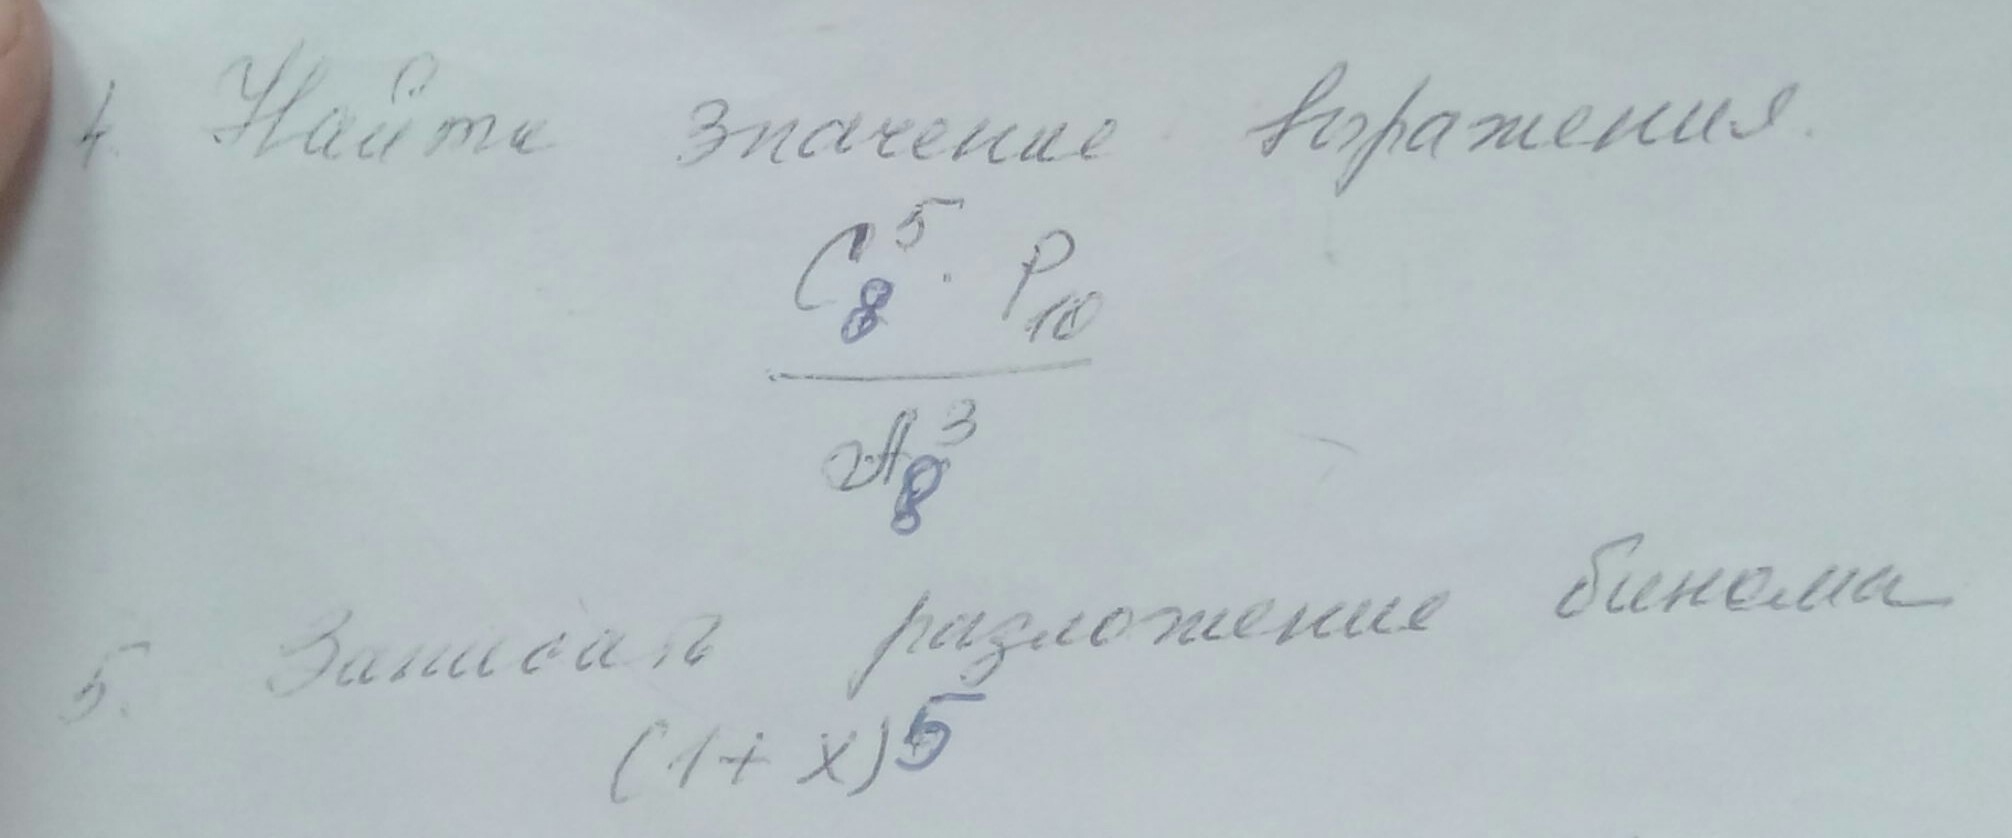 4. Найти значение выражения.
C₈⁵ · P₁₀
A₈³
5. Записать разложение бинома
(1 + x)⁵